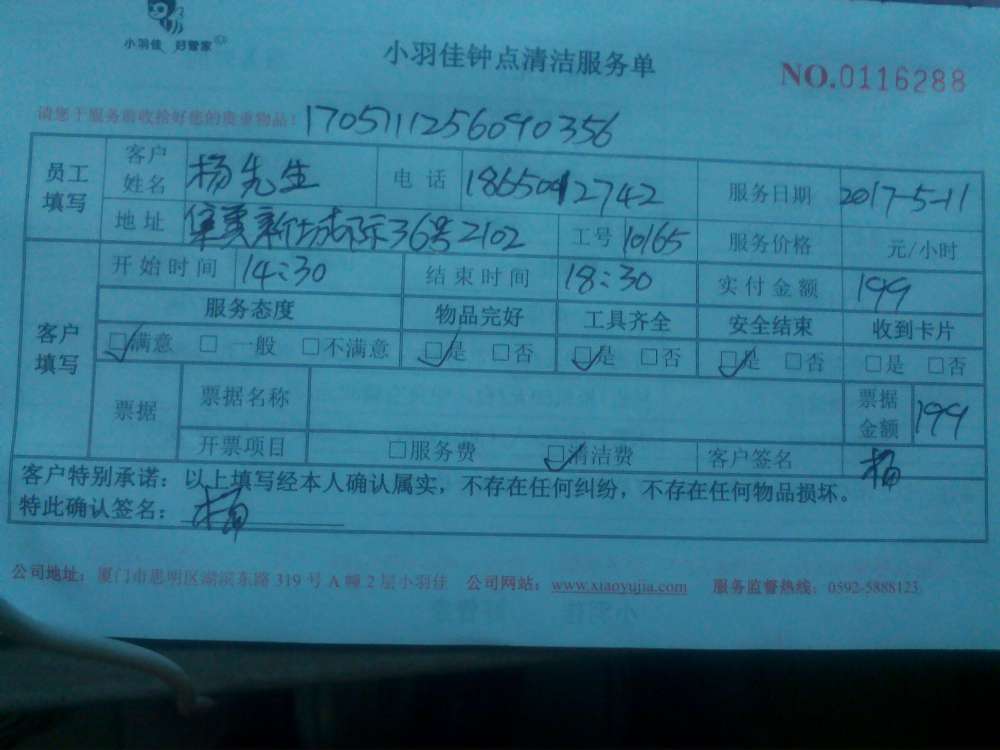 小羽佳 好管家
小羽佳钟点清洁服务单
NO.0116288
请您于服务前收拾好您的贵重物品！ 170511256090356
员工填写 客户姓名 杨先生 电话 服务日期 2017-5-11
地址 36号2102 工号 10165 服务价格 元/小时
客户填写 开始时间 14:30 结束时间 18:30 实付金额 199
服务态度 物品完好 工具齐全 安全结束 收到卡片
☑满意 □一般 □不满意 ☑是 □否 ☑是 □否 ☑是 □否 □是 □否
票据 票据名称 票据金额 199
开票项目 □服务费 ☑清洁费 客户签名 杨
客户特别承诺：以上填写经本人确认属实，不存在任何纠纷，不存在任何物品损坏。
特此确认签名： 杨
公司地址：厦门市思明区湖滨东路 319 号 A 幢 2 层小羽佳 公司网站：www.xiaoyujia.com 服务监督热线：0592-5888123